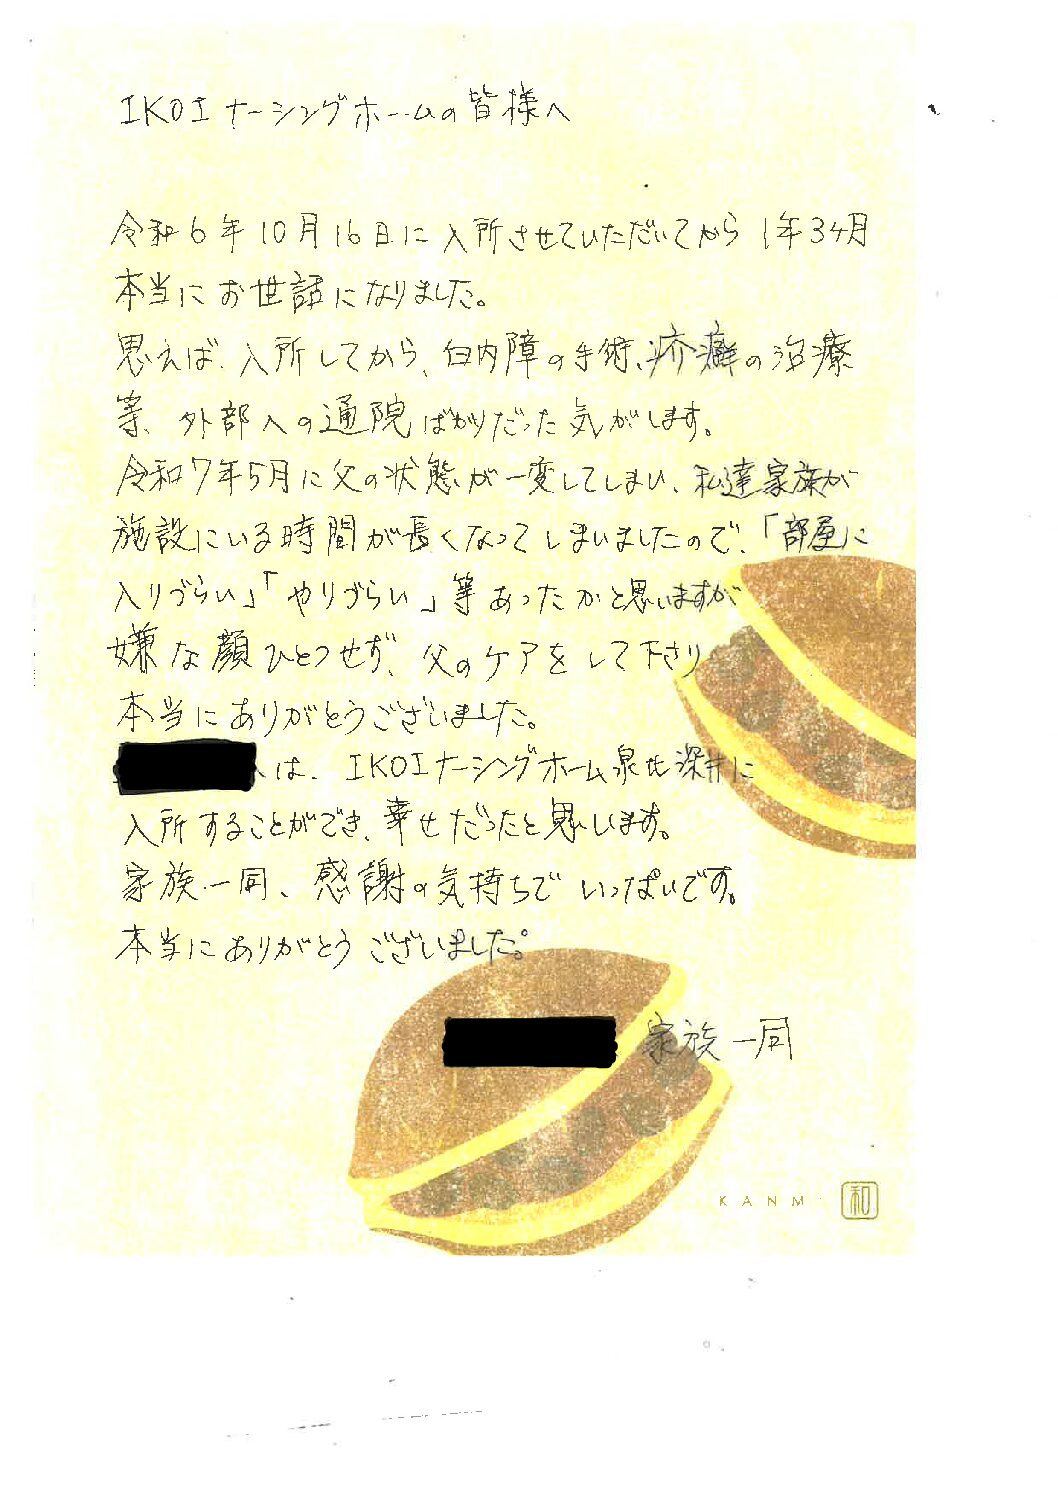 IKOIナーシングホームの皆様へ
令和6年10月16日に入所させていただいてから1年3ヶ月
本当にお世話になりました。
思えば、入所してから、白内障の手術、疥癬の治療
等、外部への通院ばかりだった気がします。
令和7年5月に父の状態が一変してしまい、私達家族が
施設にいる時間が長くなってしまいましたので、「部屋に
入りづらい」「やりづらい」等あったかと思いますが
嫌な顔ひとつせず、父のケアをして下さり
本当にありがとうございました。
は、IKOIナーシングホーム泉北深井に
入所することができ、幸せだったと思います。
家族一同、感謝の気持ちでいっぱいです。
本当にありがとうございました。
家族一同
KANM
和